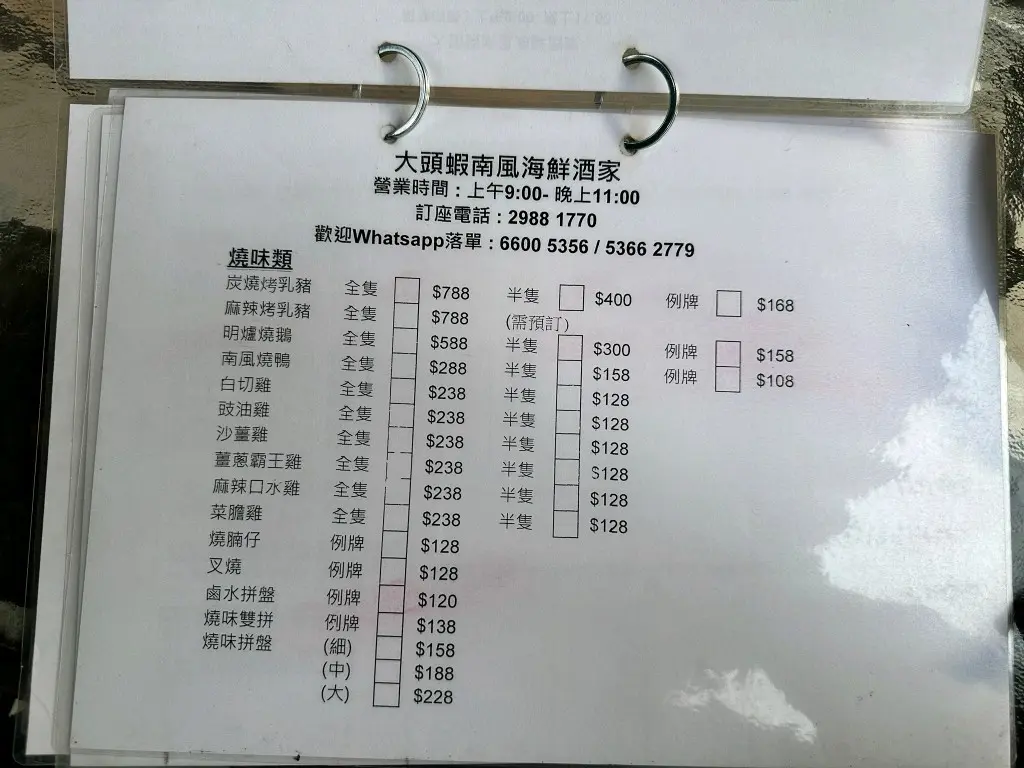 大頭蝦南風海鮮酒家
營業時間：上午9:00- 晚上11:00
訂座電話：2988 1770
歡迎Whatsapp落單：6600 5356 / 5366 2779
燒味類
炭燒烤乳豬 全隻 $788 半隻 $400 例牌 $168
麻辣烤乳豬 全隻 $788 (需預訂)
明爐燒鵝 全隻 $588 半隻 $300 例牌 $158
南風燒鴨 全隻 $288 半隻 $158 例牌 $108
白切雞 全隻 $238 半隻 $128
豉油雞 全隻 $238 半隻 $128
沙薑雞 全隻 $238 半隻 $128
薑蔥霸王雞 全隻 $238 半隻 $128
麻辣口水雞 全隻 $238 半隻 $128
菜膽雞 全隻 $238 半隻 $128
燒腩仔 例牌 $128
叉燒 例牌 $128
鹵水拼盤 例牌 $120
燒味雙拼 例牌 $138
燒味拼盤 (細) $158
(中) $188
(大) $228